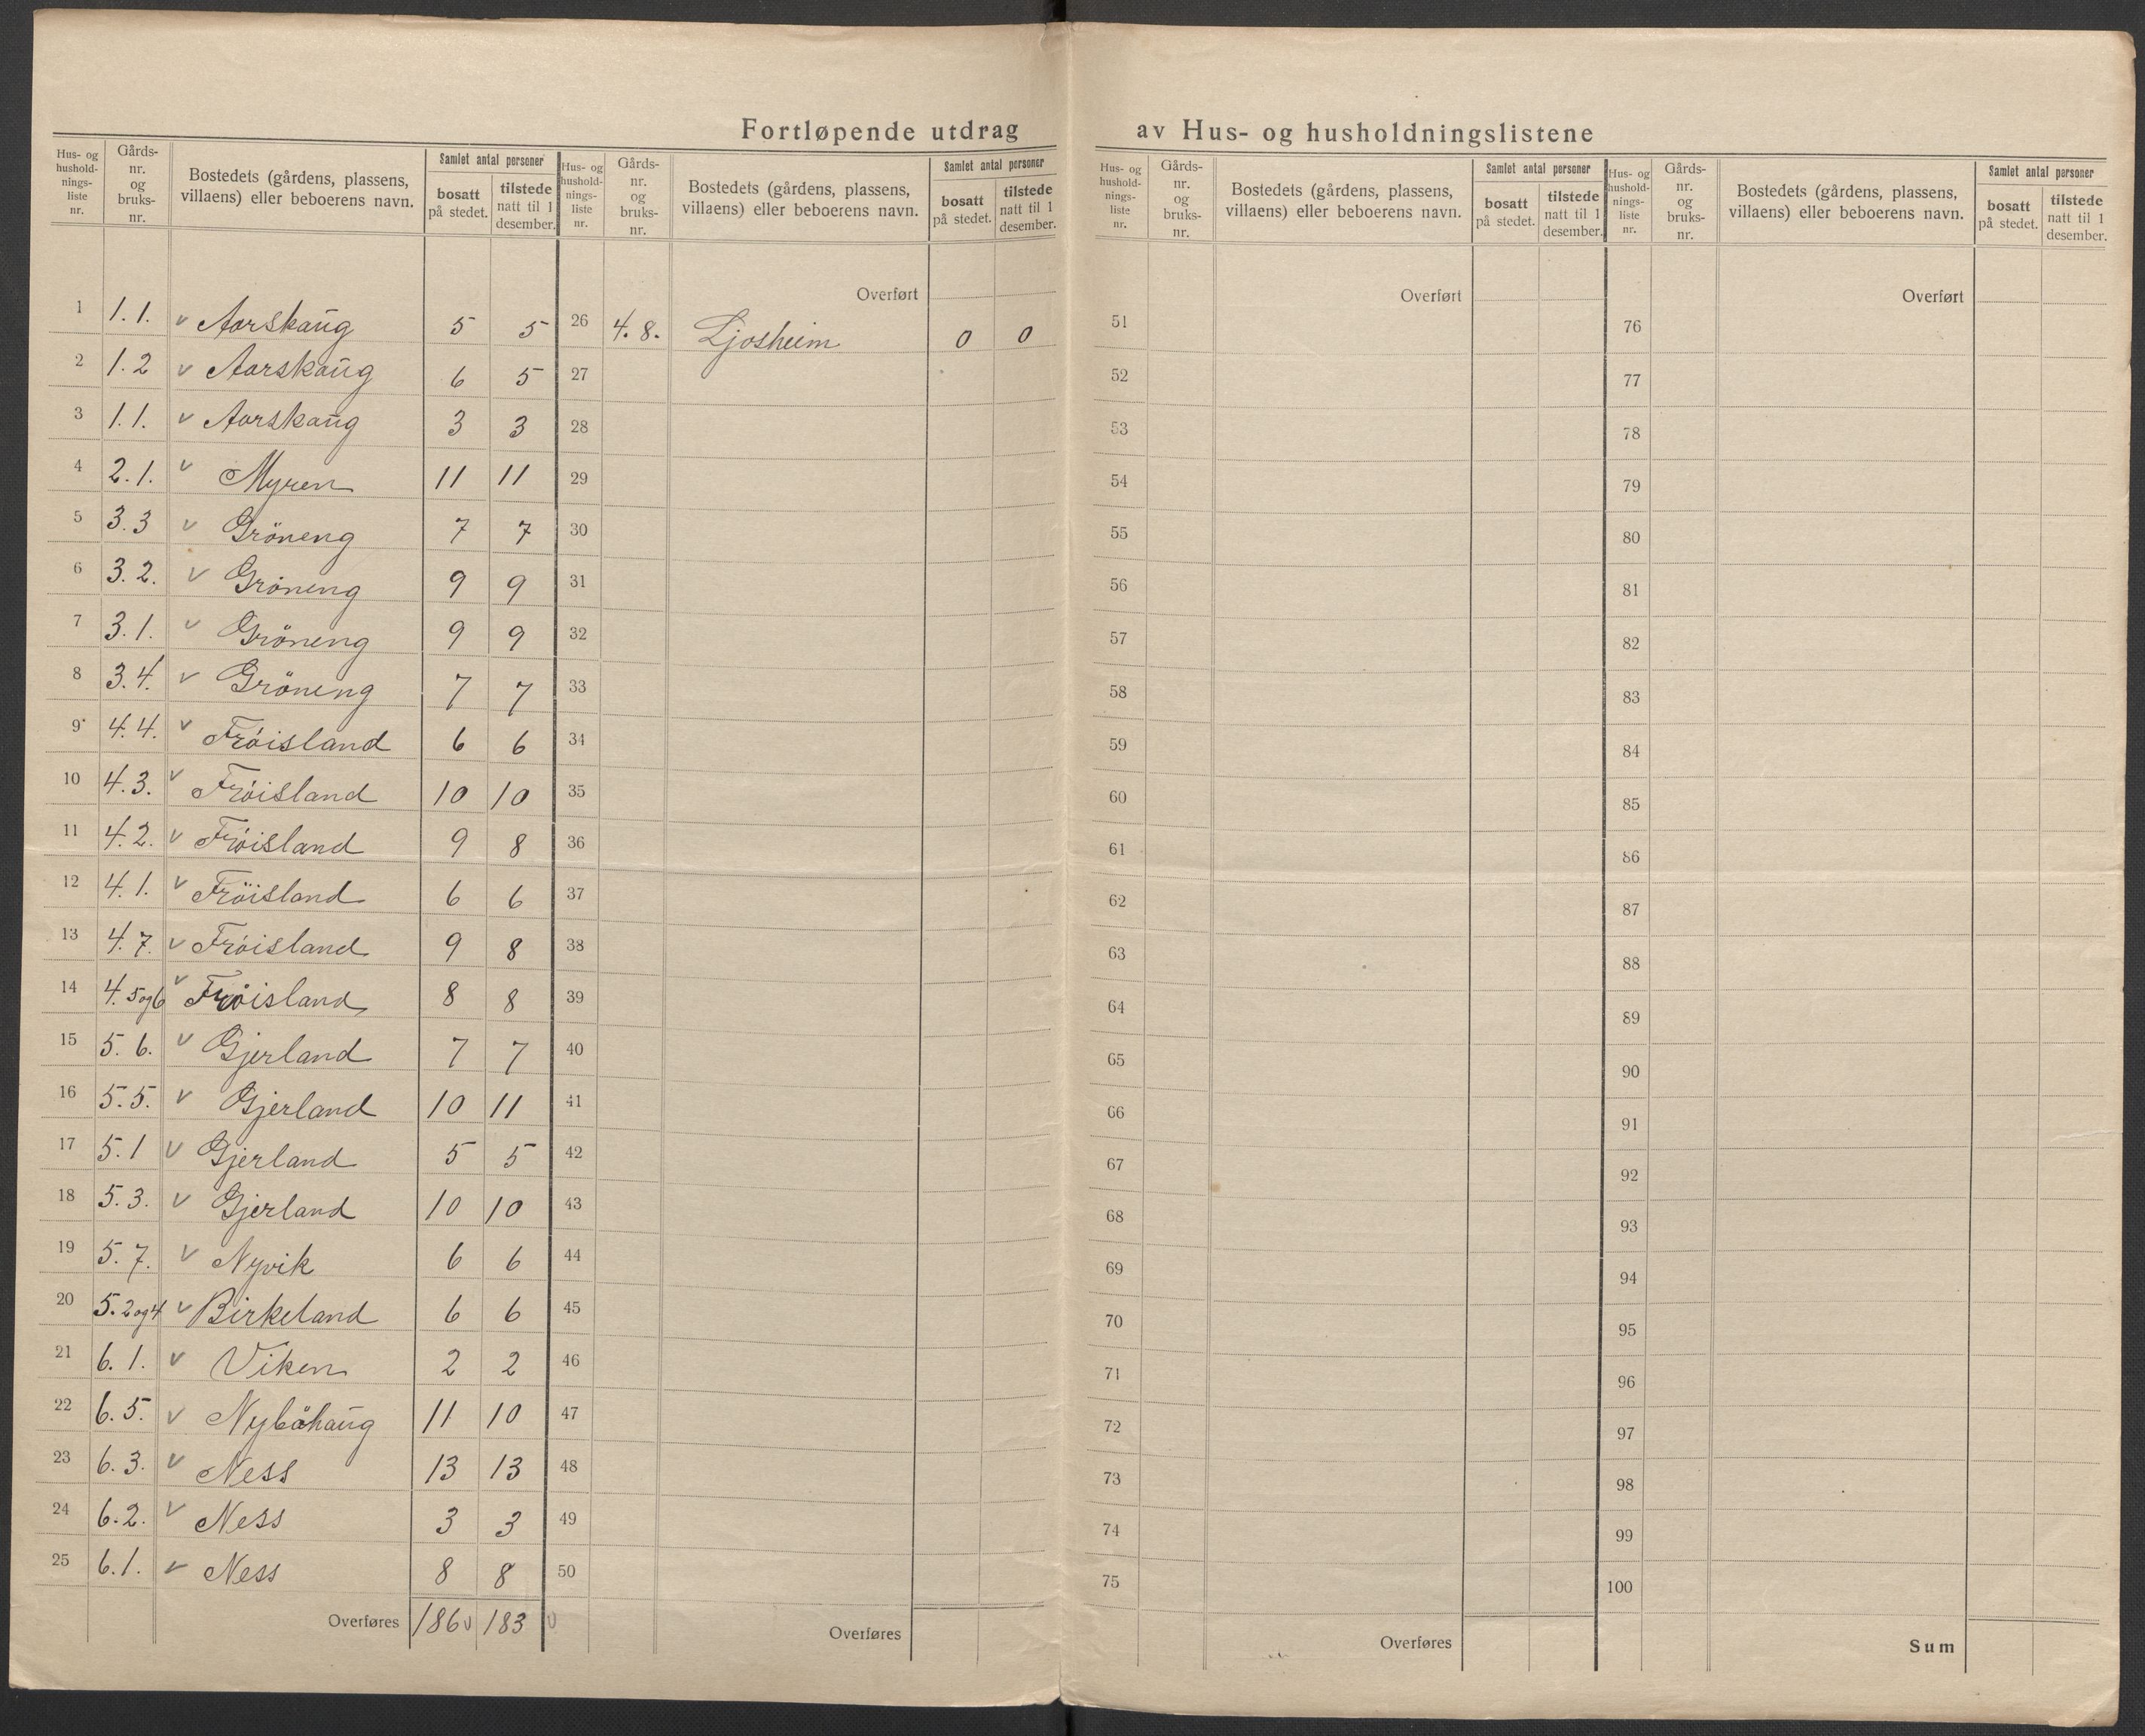 Fortløpende utdrag av Hus- og husholdningslistene
Hus- og hushold- nings- liste nr. | Gårds- nr. og bruks- nr. | Bostedets (gårdens, plassens, villaens) eller beboerens navn. | Samlet antal personer | bosatt på stedet. | tilstede natt til 1 desember.
Hus- og hushold- nings- liste nr. | Gårds- nr. og bruks- nr. | Bostedets (gårdens, plassens, villaens) eller beboerens navn. | Samlet antal personer | bosatt på stedet. | tilstede natt til 1 desember.
Hus- og hushold- nings- liste nr. | Gårds- nr. og bruks- nr. | Bostedets (gårdens, plassens, villaens) eller beboerens navn. | Samlet antal personer | bosatt på stedet. | tilstede natt til 1 desember.
Hus- og hushold- nings- liste nr. | Gårds- nr. og bruks- nr. | Bostedets (gårdens, plassens, villaens) eller beboerens navn. | Samlet antal personer | bosatt på stedet. | tilstede natt til 1 desember.
1 1.1. v Aarskaug 5 5
2 1.2 v Aarskaug 6 5
3 1.1. v Aarskaug 3 3
4 2.1. v Myren 11 11
5 3.3 v Gröneng 7 7
6 3.2. v Gröneng 9 9
7 3.1. v Gröneng 9 9
8 3.4. v Gröneng 7 7
9 4.4. v Fröisland 6 6
10 4.3. v Fröisland 10 10
11 4.2. v Fröisland 9 8
12 4.1. v Fröisland 6 6
13 4.7. v Fröisland 9 8
14 4. 5og6 v Fröisland 8 8
15 5.6. v Gjerland 7 7
16 5.5. v Gjerland 10 11
17 5.1 v Gjerland 5 5
18 5.3. v Gjerland 10 10
19 5.7. v Nyvik 6 6
20 5.2og4 v Birkeland 6 6
21 6.1. v Viken 2 2
22 6.5. v Nyböhaug 11 10
23 6.3. v Ness 13 13
24 6.2. v Ness 3 3
25 6.1. v Ness 8 8
Overføres 186 v 183 v
Overført
26 4.8. Ljosheim 0 0
27
28
29
30
31
32
33
34
35
36
37
38
39
40
41
42
43
44
45
46
47
48
49
50
Overføres
Overført
51
52
53
54
55
56
57
58
59
60
61
62
63
64
65
66
67
68
69
70
71
72
73
74
75
Overføres
Overført
76
77
78
79
80
81
82
83
84
85
86
87
88
89
90
91
92
93
94
95
96
97
98
99
100
Sum